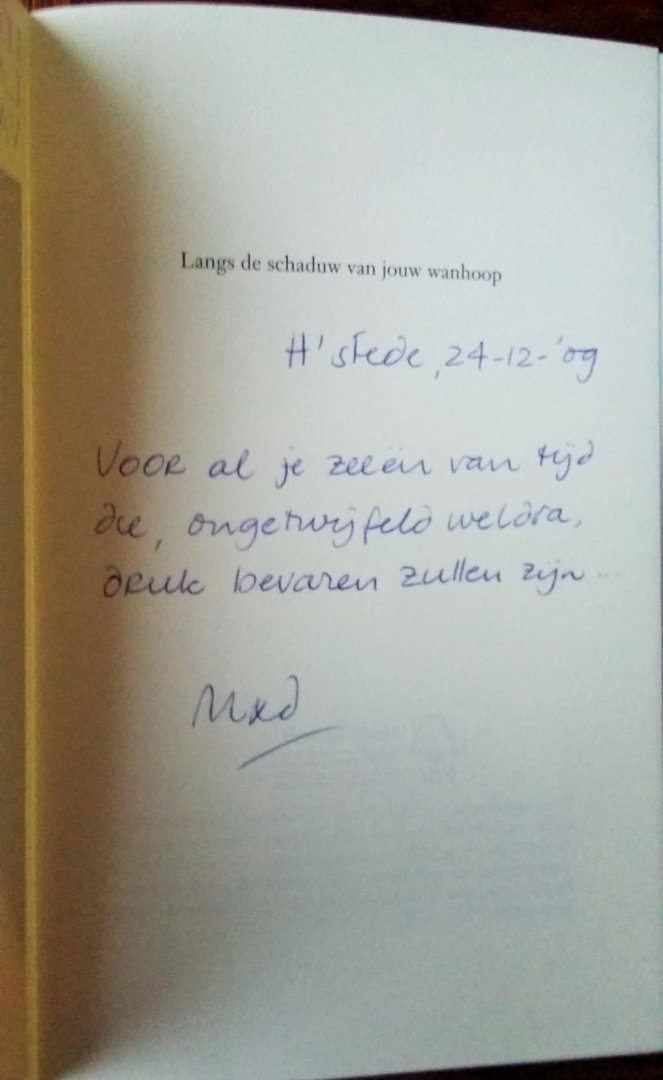 Langs de schaduw van jouw wanhoop
H'stede, 24-12-'09
Voor al je zeeën van tijd
die, ongetwijfeld weldra,
druk bevaren zullen zijn...